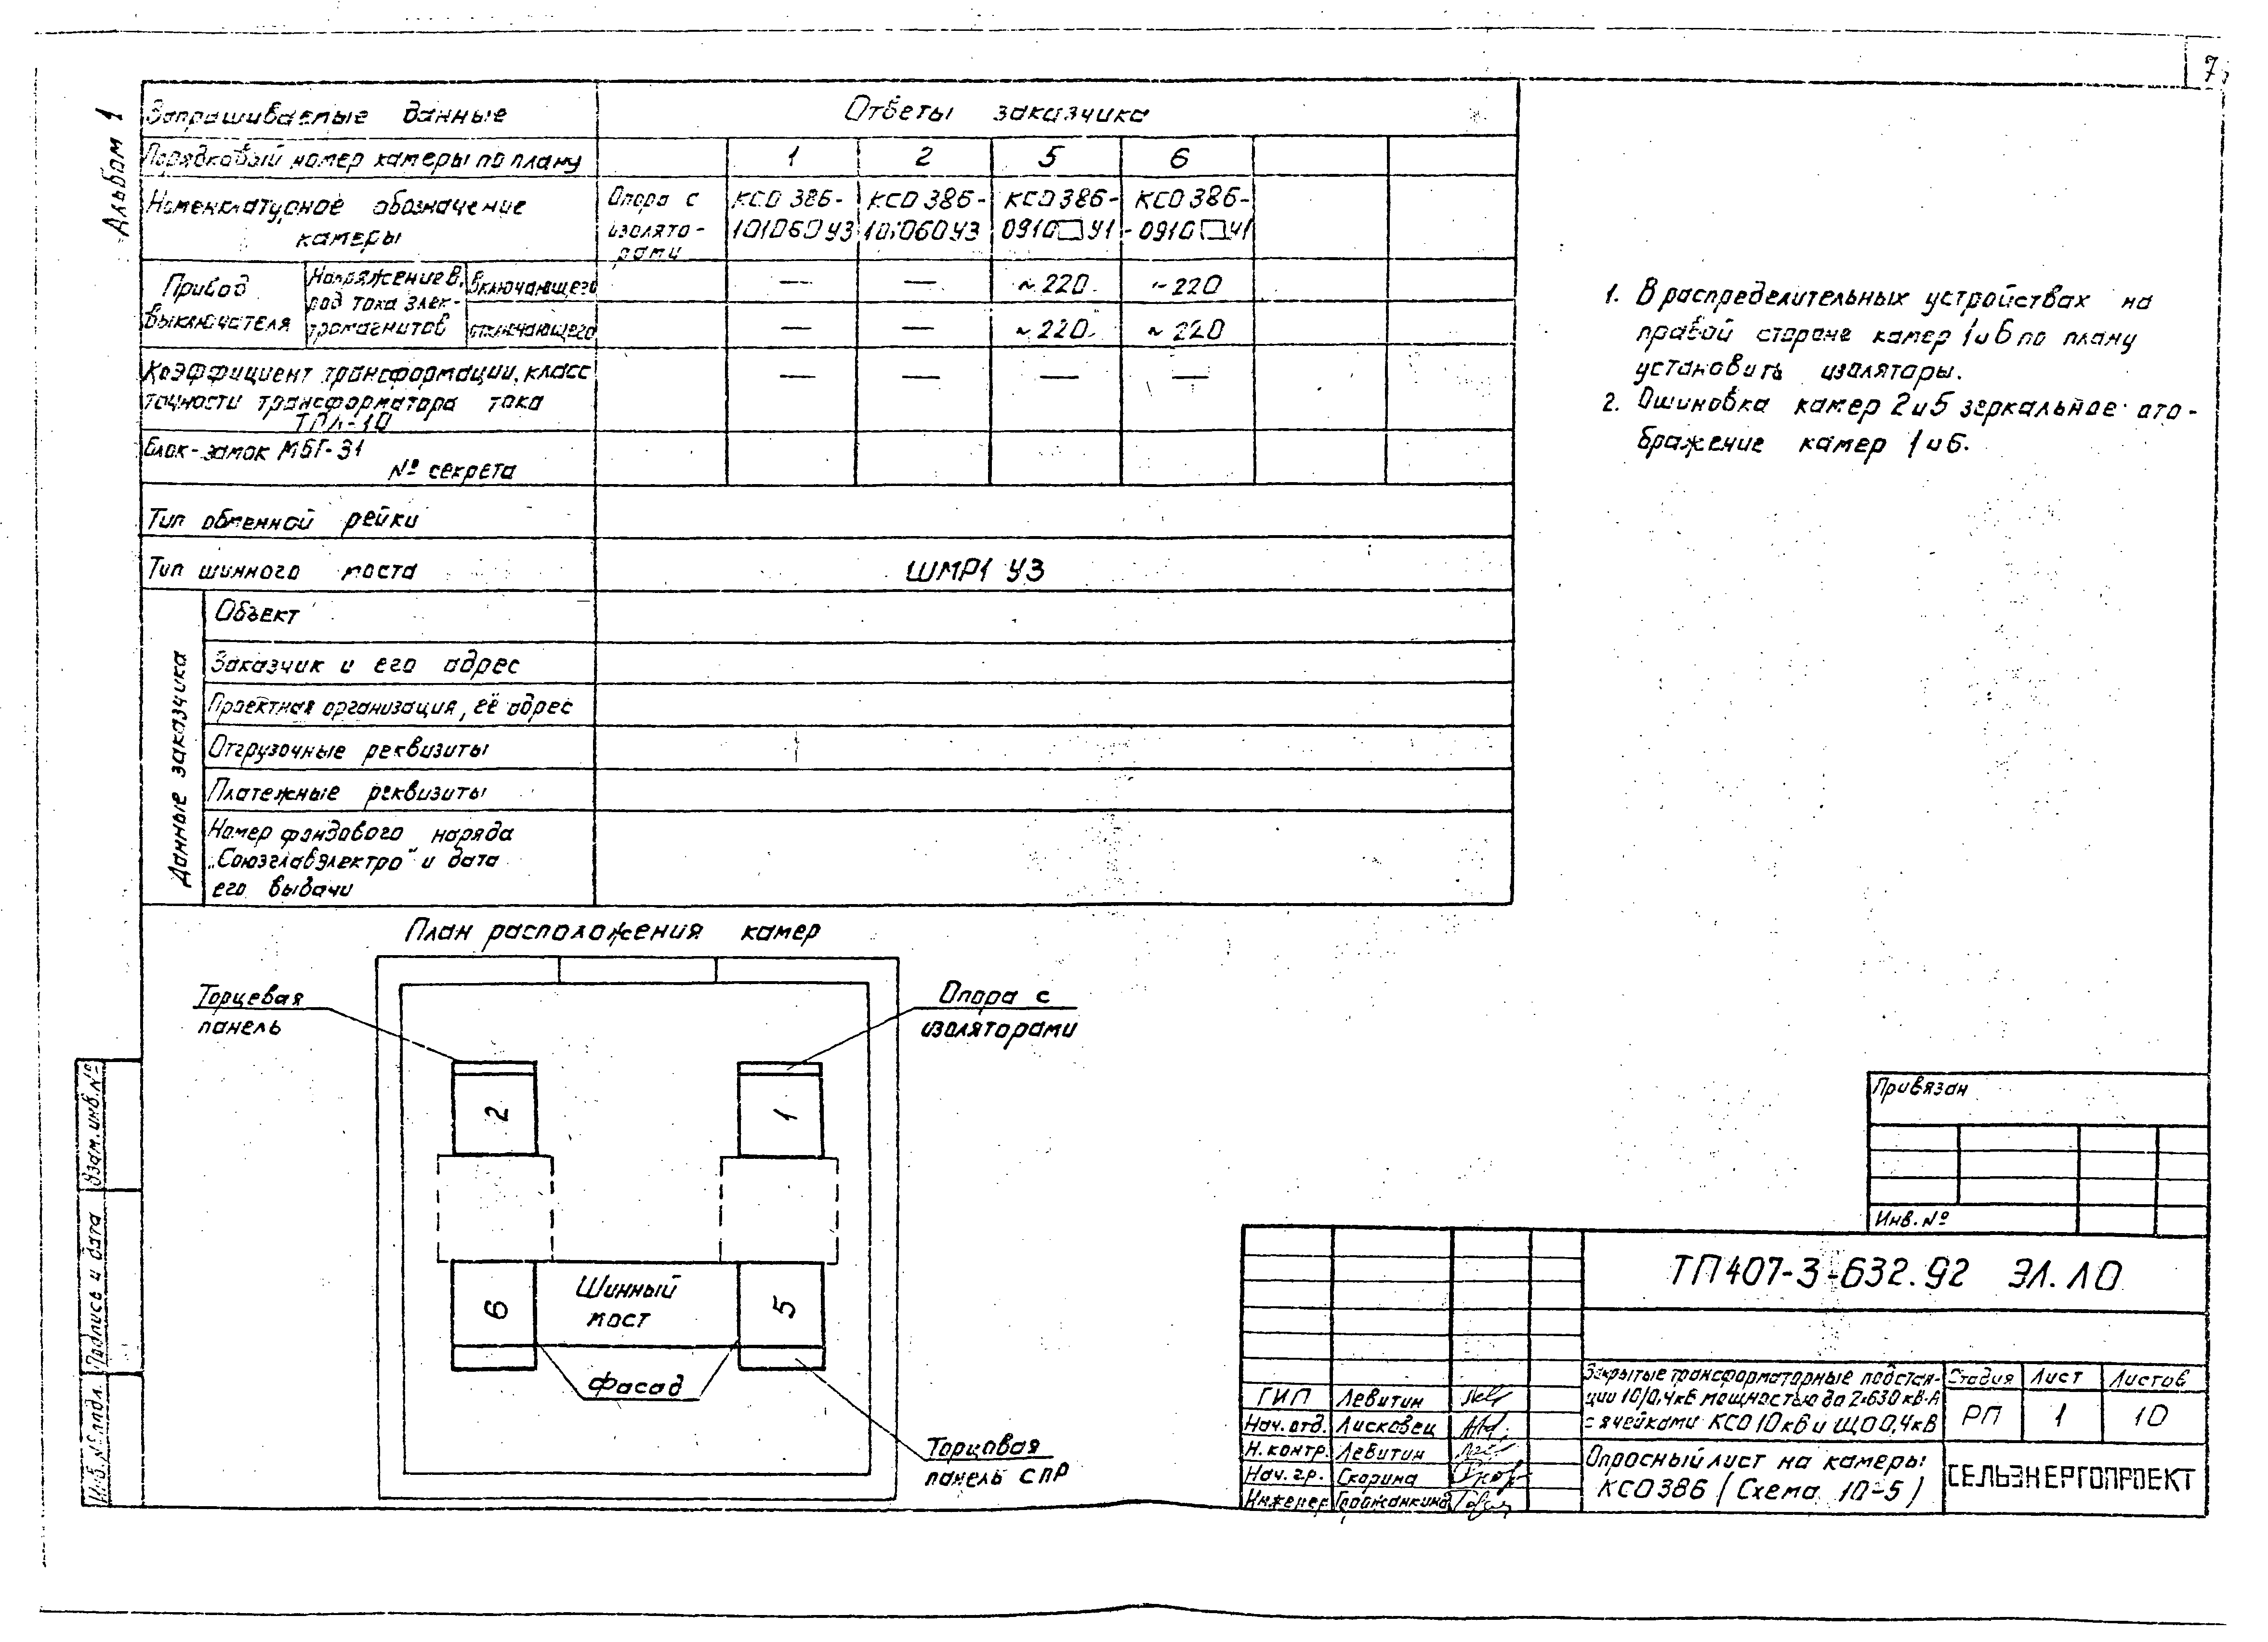 7
Альбом 1
Запрашиваемые данные
Ответы заказчика
Порядковый номер камеры по плану
1 2 5 6
Номенклатурное обозначение
камеры
Опора с
изолято-
рами
КСО 386-
101060 У3
КСО 386-
101060 У3
КСО 386-
0910□У1
КСО 386-
0910□У1
Привод
выключателя
Напряжение В,
род тока элек-
тромагнитов
включающего
— — ~220 ~220
отключающего
— — ~220 ~220
Коэффициент трансформации, класс
точности трансформатора тока
ТПЛ-10
— — — —
Блок-замок МБГ-31
№ секрета
Тип обменной рейки
Тип шинного моста
ШМР1 У3
Данные заказчика
Объект
Заказчик и его адрес
Проектная организация, её адрес
Отгрузочные реквизиты
Платежные реквизиты
Номер фондового наряда
„Союзглавэлектро" и дата
его выдачи
1. В распределительных устройствах на
правой стороне камер 1 и 6 по плану
установить изоляторы.
2. Ошиновка камер 2 и 5 зеркальное ото-
бражение камер 1 и 6.
План расположения камер
Торцевая
панель
Опора с
изоляторами
2
1
6
Шинный
мост
5
Фасад
Торцовая
панель СПР
Взам. инв. №
Подпись и дата
Инв. № подл.
Привязан
Инв. №
ТП407-3-632.92 ЭЛ.ЛО
Закрытые трансформаторные подстан-
ции 10/0,4кВ мощностью до 2×630 кВ·А
с ячейками КСО 10кВ и ЩО 0,4кВ
Стадия Лист Листов
РП 1 10
ГИП Левитин
Нач. отд. Лисковец
Н. контр. Левитин
Нач. гр. Скорина
Инженер
Опросный лист на камеры
КСО 386 (Схема 10-5)
СЕЛЬЭНЕРГОПРОЕКТ